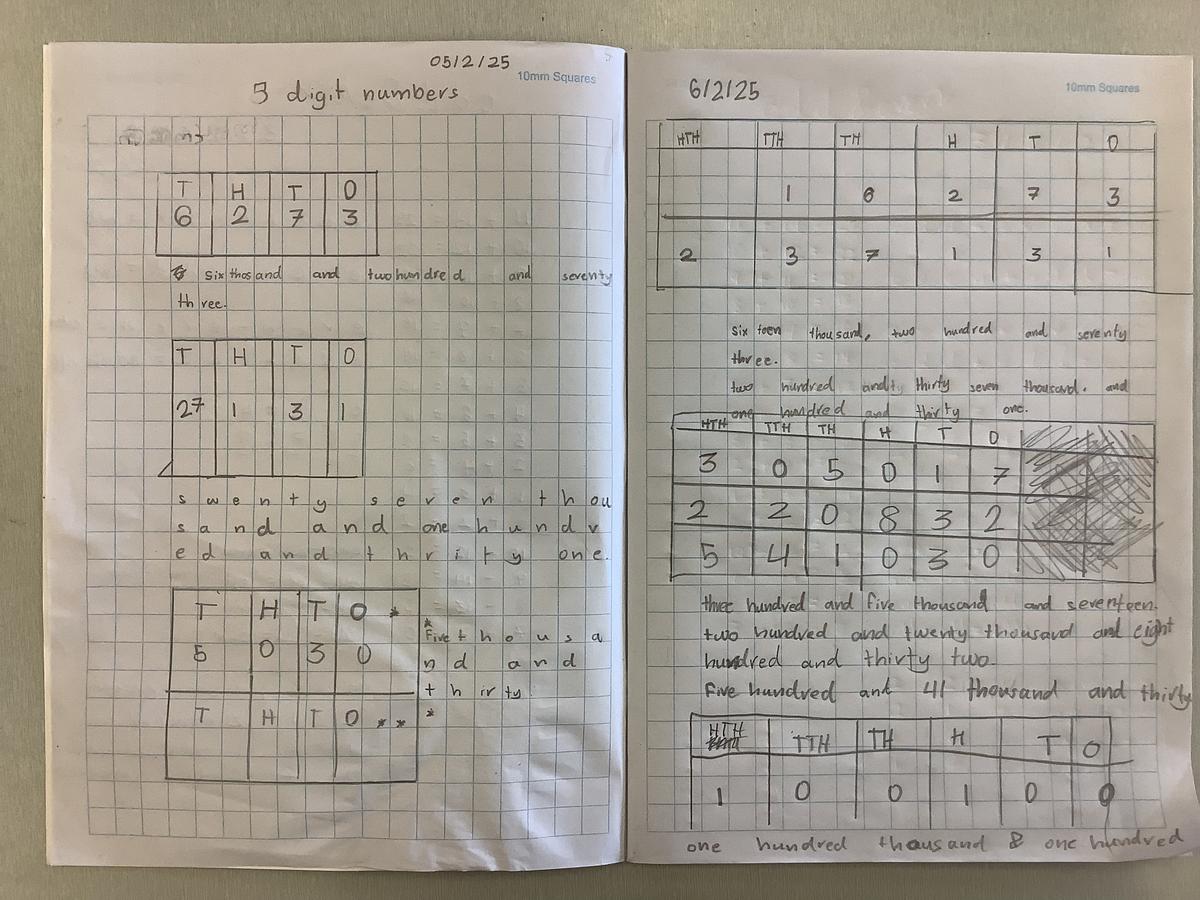 05/2/25
10mm Squares
5 digit numbers
T H T O
6 2 7 3
six thosand and two hundred and seventy
three.
T H T O
27 1 3 1
swenty seven thou
sand and one hundr
ed and thrity one.
T H T O *
5 0 3 0
* Five thousa
nd and
thirty
T H T O * *
*
6/2/25
10mm Squares
HTH TTH TH H T O
1 6 2 7 3
2 3 7 1 3 1
six teen thousand, two hundred and seventy
three.
two hundred and thirty seven thousand. and
one hundred and thirty one.
HTH TTH TH H T O
3 0 5 0 1 7
2 2 0 8 3 2
5 4 1 0 3 0
three hundred and five thousand and seventeen.
two hundred and twenty thousand and eight
hundred and thirty two.
Five hundred and 41 thousand and thirty
HTH TTH TH H T O
1 0 0 1 0 0
one hundred thousand & one hundred